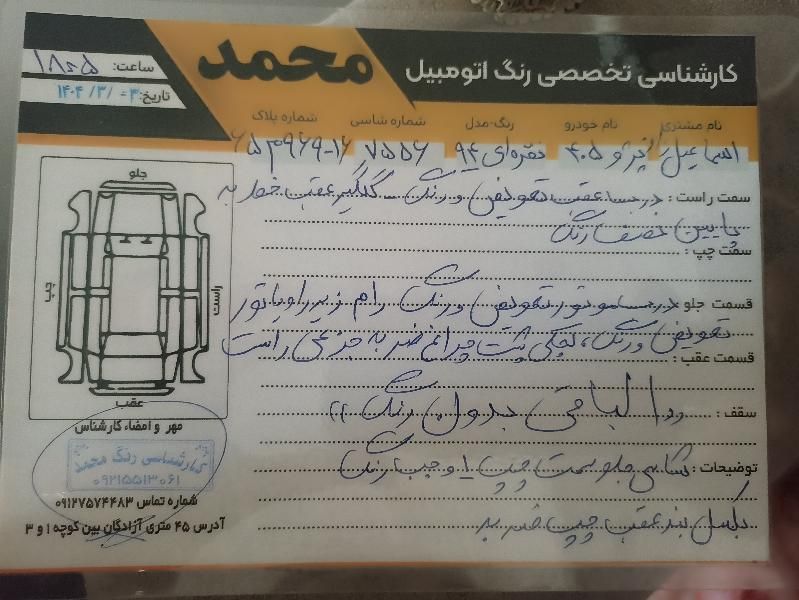 کارشناسی تخصصی رنگ اتومبیل
محمد
ساعت: ۱۸:۰۵
تاریخ: ۱۴۰۴/۳/۳۰
نام مشتری نام خودرو رنگ-مدل شماره شاسی شماره پلاک
اسماعیل پژو ۴۰۵ نقره‌ای ۹۴ ۷۵۵۶
سمت راست: درب عقب تعویض و رنگ - گلگیر عقب خط به
پایین خفیف رنگ
سمت چپ:
قسمت جلو: درب موتور تعویض و رنگ رام زیر رادیاتور
تعویض و رنگ، لچکی پشت چراغ ضربه جزعی راست
قسمت عقب:
سقف: الباقی بدون رنگ
توضیحات: شاسی جلو سمت چپ ۱ وجب رنگ
بکسل بند عقب چپ ضربه
جلو
چپ
راست
عقب
مهر و امضاء کارشناس
کارشناسی رنگ محمد
۰۹۲۱۵۵۱۳۰۶۱
شماره تماس ۰۹۱۲۷۵۷۴۴۸۳
آدرس ۴۵ متری آزادگان بین کوچه ۱ و ۳